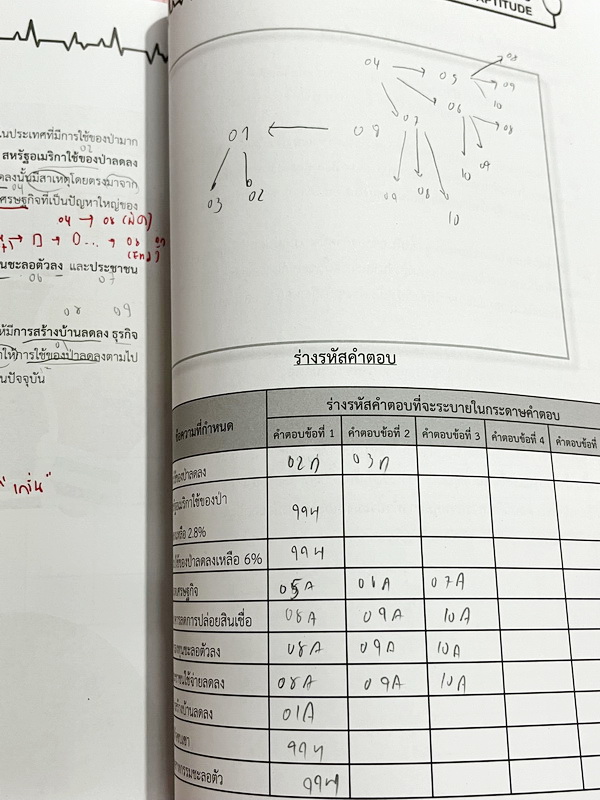 APTITUDE
นประเทศที่มีการใช้ของป่ามาก
02
สหรัฐอเมริกาใช้ของป่าลดลง
ดลงนั้นมีสาเหตุโดยตรงมาจาก
04
ศรษฐกิจที่เป็นปัญหาใหญ่ของ
นชะลอตัวลง และประชาชน
06 07
08 09
ห้มีการสร้างบ้านลดลง ธุรกิจ
ให้การใช้ของป่าลดลงตามไป
นปัจจุบัน
04 05 08
09
10
06 08
09
10
07
09 08 10
01 09
03 02
ร่างรหัสคำตอบ
ข้อความที่กำหนด ร่างรหัสคำตอบที่จะระบายในกระดาษคำตอบ
คำตอบข้อที่ 1 คำตอบข้อที่ 2 คำตอบข้อที่ 3 คำตอบข้อที่ 4 คำตอบข้อที่
ใช้ของป่าลดลง 02A 03A
รัฐอเมริกาใช้ของป่า
เหลือ 2.8% 99H
ใช้ของป่าลดลงเหลือ 6% 99H
เศรษฐกิจ 05A 06A 07A
ารลดการปล่อยสินเชื่อ 08A 09A 10A
งทุนชะลอตัวลง 08A 09A 10A
ชาชนใช้จ่ายลดลง 08A 09A 10A
สร้างบ้านลดลง 01A
99H
สาหกรรมชะลอตัว 99H